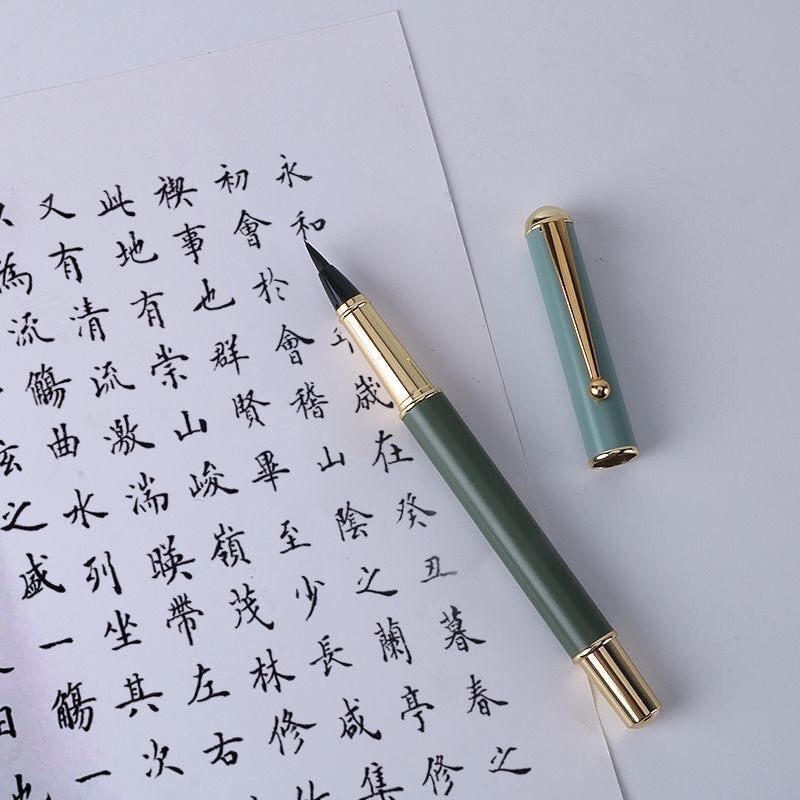 永和歲在癸丑暮春之
初會於會稽山陰之蘭亭修
禊事也群賢畢至少長咸集
此地有崇山峻嶺茂林修
又有清流激湍暎帶左右
為流觴曲水列坐其次
弦之盛一觴一